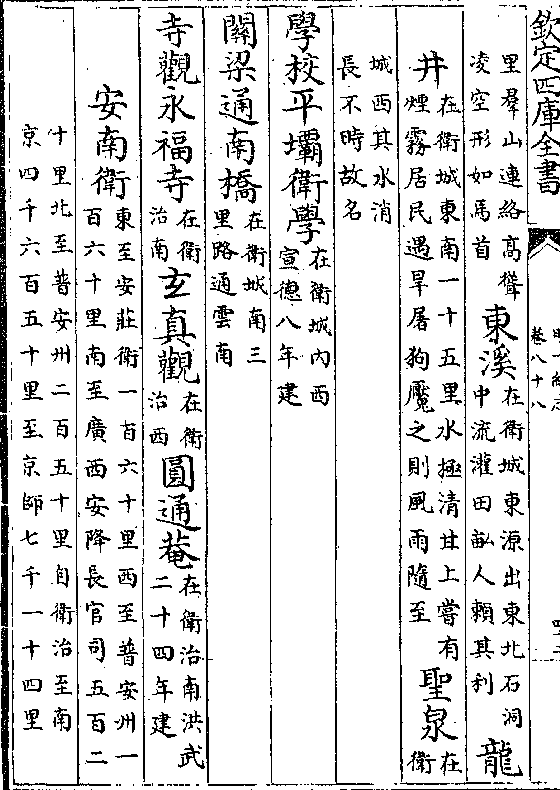 欽定四庫全書
卷八十八
里羣山連絡高聳凌空形如馬首 東溪 在衛城東源出東北石洞中流灌田畝人賴其利 龍
井 在衛城東南一十五里水極清甘上嘗有煙霧居民遇旱屠狗魘之則風雨隨至 聖泉 在衛
城西其水消長不時故名
學校平壩衛學 在衛城内西宣德八年建
關梁通南橋 在衛城南三里路通雲南
寺觀永福寺 在衛治南 玄真觀 在衛治西 圓通菴 在衛治南洪武二十四年建
安南衛 東至安莊衛一百六十里西至普安州一百六十里南至廣西安降長官司五百二
十里北至普安州二百五十里自衛治至南京四千六百五十里至京師七千一十四里